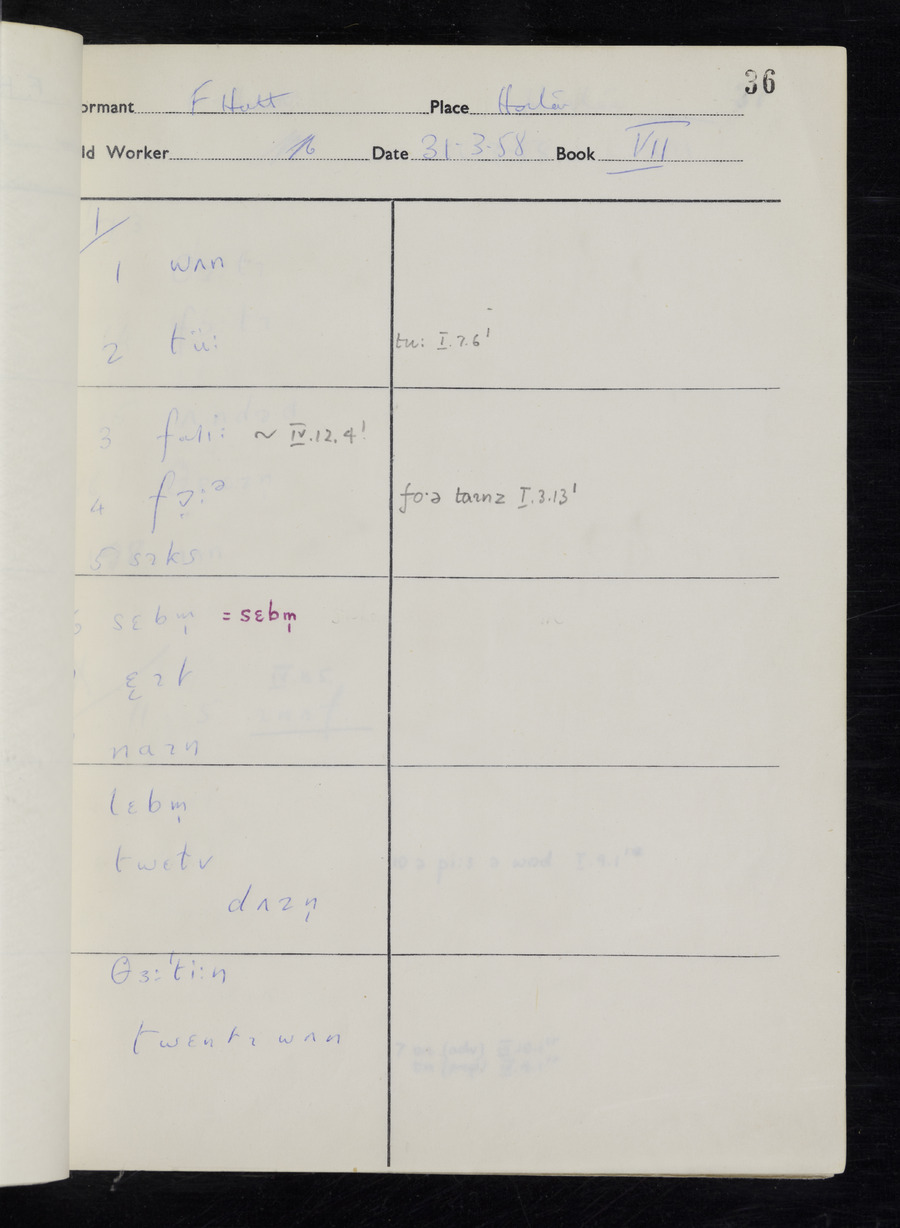 36
ormant F Hutt Place
ld Worker Date 31·3·58 Book VII
1
1 wʌn
2 tüː tuː I.7.6ꞌ
3 ~ IV.12.4ꞌ
4 fɔ̣ːə fo·ə taɪmz I.3.13ꞌ
5 sɪks
sɛbm̩ = sɛbm̩
ɛɪt
naɪn
lɛbm̩
twɛlv
dʌzn̩
θɜːˈtiːn
twɛntɪ wʌn